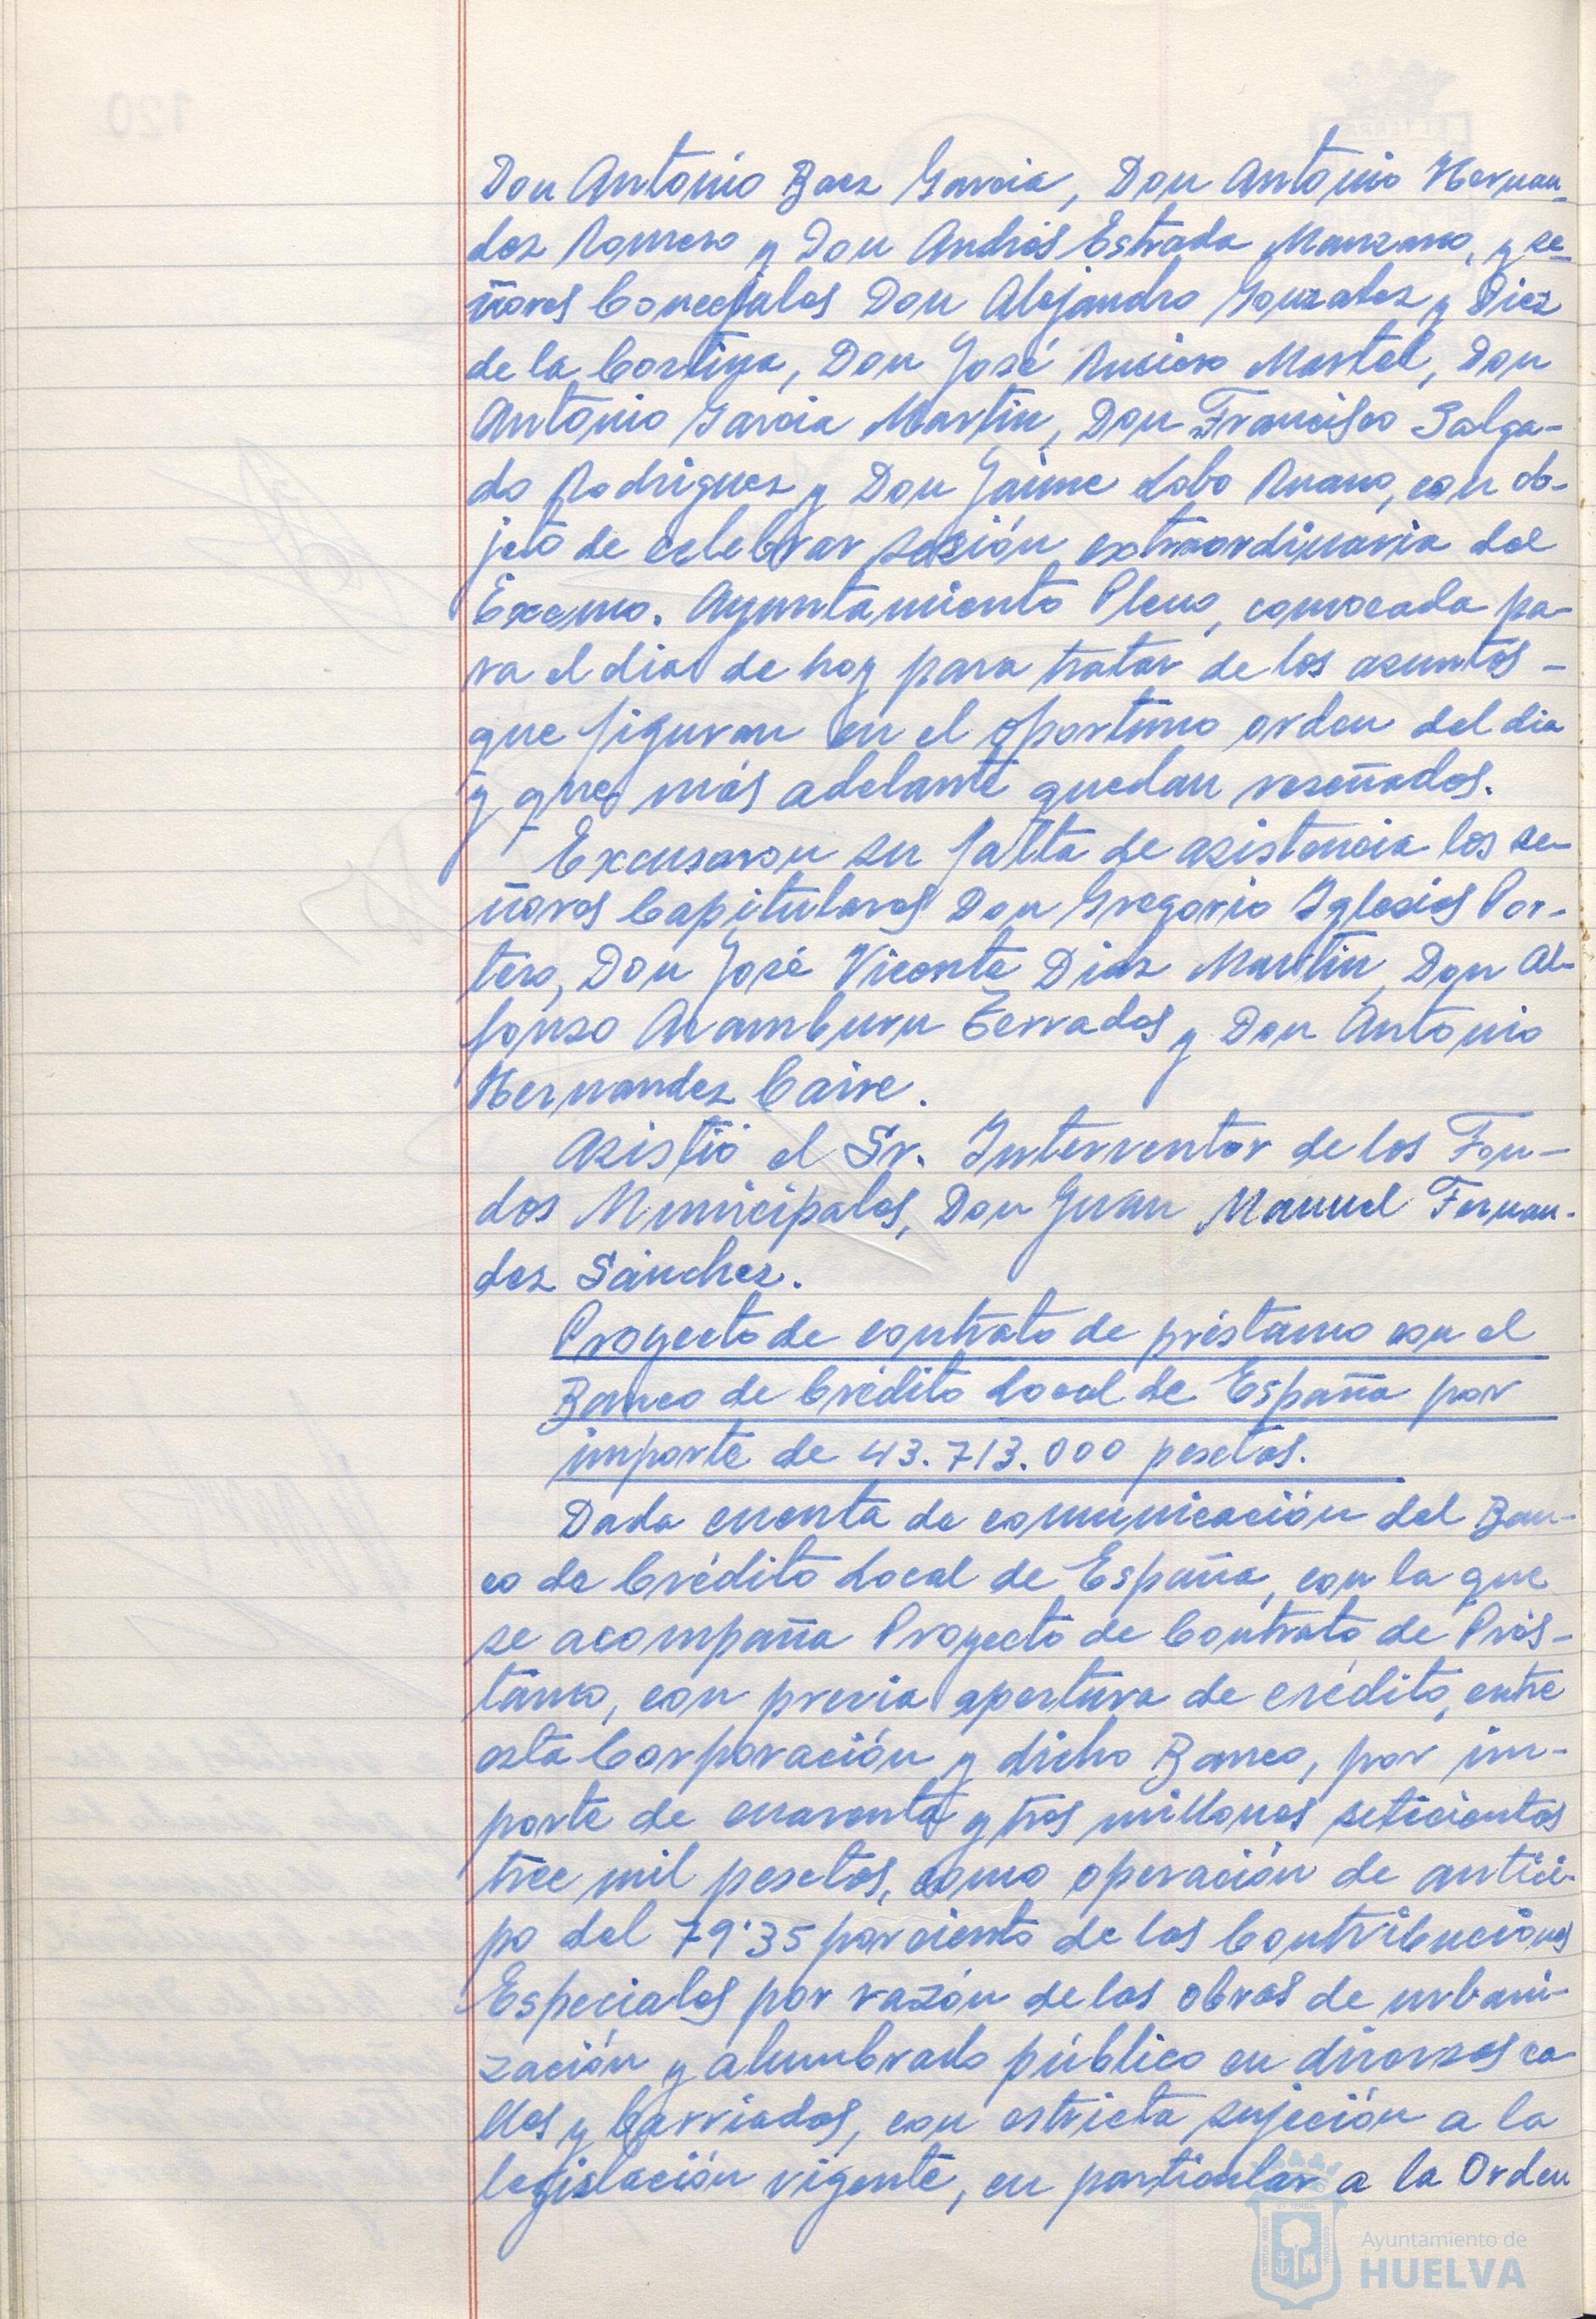 Don Antonio Baez Garcia, Don Antonio Hernan-
dez Romero y Don Andrés Estrada Manzano, y se-
ñores Concejales Don Alejandro Gonzalez y Diez
de la Cortina, Don José Martel, Don
Antonio Garcia Martin, Don Francisco Salga-
do Rodriguez y Don Jaime Lobo Ruano, con ob-
jeto de celebrar sesión extraordinaria del
Excmo. Ayuntamiento Pleno, convocada pa-
ra el dia de hoy para tratar de los asuntos -
que figuran en el oportuno orden del dia
y que más adelante quedan reseñados.
Excusaron su falta de asistencia los se-
ñores Capitulares Don Gregorio Iglesias Por-
tero, Don José Vicente Diaz Martin, Don Al-
fonso Aramburu Terrados y Don Antonio
Hernandez Caire.
Asistió el Sr. Interventor de los Fon-
dos Municipales, Don Juan Manuel Fernan-
dez Sánchez.
Proyecto de contrato de préstamo con el
Banco de Crédito Local de España por
importe de 43.713.000 pesetas.
Dada cuenta de comunicación del Ban-
co de Crédito Local de España, con la que
se acompaña Proyecto de Contrato de Prés-
tamo, con previa apertura de crédito, entre
esta Corporación y dicho Banco, por im-
porte de cuarenta y tres millones setecientas
trece mil pesetas, como operación de antici-
po del 79'35 por ciento de las Contribuciones
Especiales por razón de las obras de urbani-
zación y alumbrado público en diversas ca-
lles y barriadas, con estricta sujeción a la
legislación vigente, en particular a la Orden
Ayuntamiento de
HUELVA